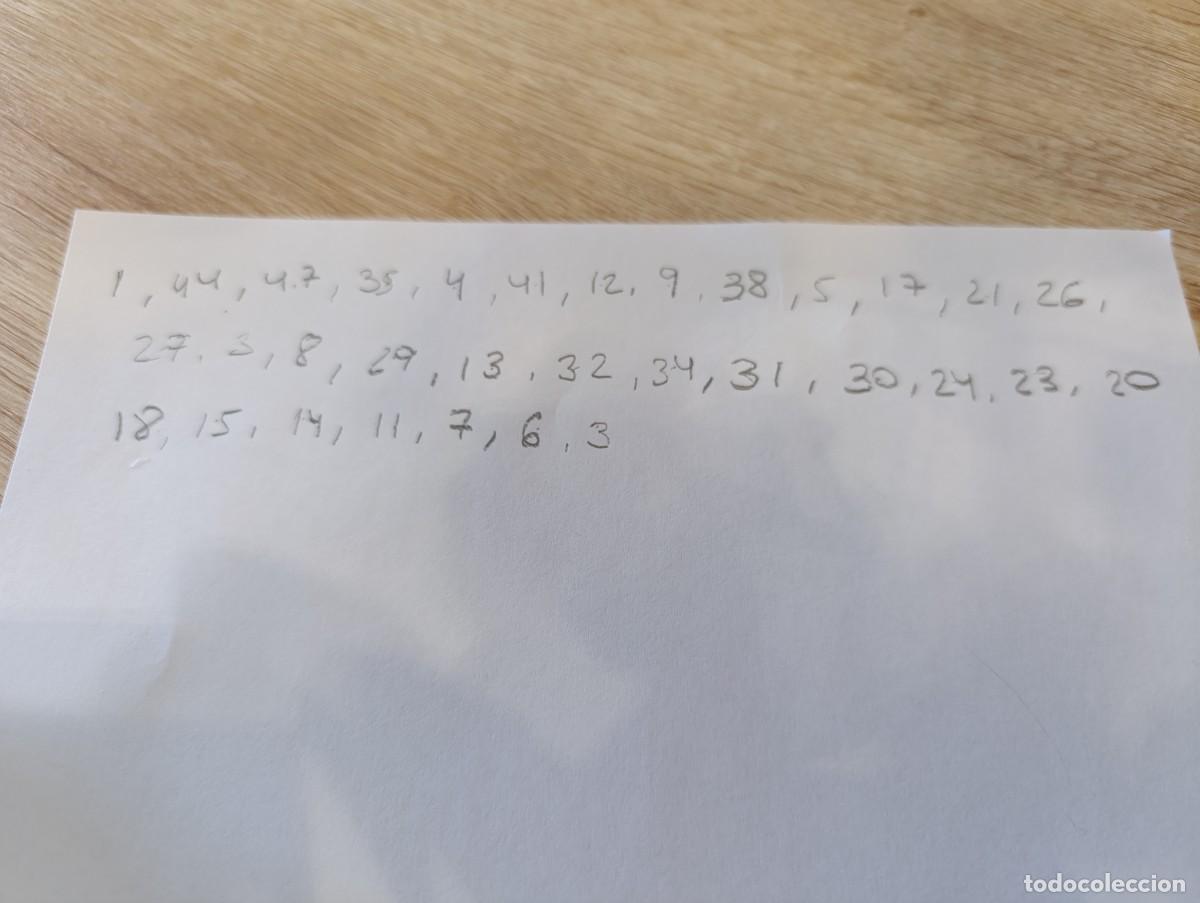 1, 44, 47, 35, 4, 41, 12, 9, 38, 5, 17, 21, 26,
27, 3, 8, 29, 13, 32, 34, 31, 30, 24, 23, 20
18, 15, 14, 11, 7, 6, 3
todocoleccion